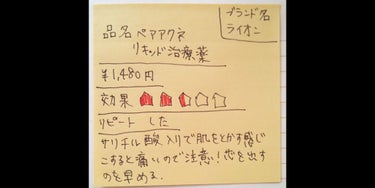 ブランド名
ライオン
品名 ペアアクネ
リキッド治療薬
¥1,480円
効果
リピート した
サリチル酸入りで肌をとかす感じ
こすると痛いので注意!芯を出す
のを早める.